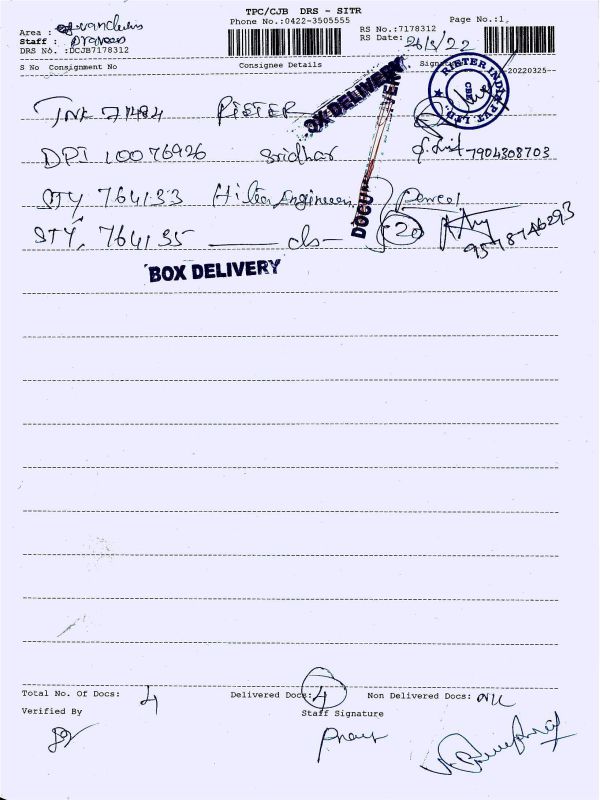 TPC/CJB DRS - SITR
Phone No.:0422-3505555 Page No.:1,
Area :
Staff : Praveen
DRS No. :DCJB7178312
RS No.:7178312
RS Date: 26/3/22
S No Consignment No Consignee Details
-20220325-
RIETER INDIA PVT. LTD.
CBE
BOX DELIVERY
TNK 71484 RIETER
DPI 10076926 Sridhar 7904308703
STY 764133 Engineers Parcel
STY, 764135 do 20 9578746293
BOX DELIVERY
Total No. Of Docs: 4 Delivered Docs: 4 Non Delivered Docs: NIL
Verified By Staff Signature